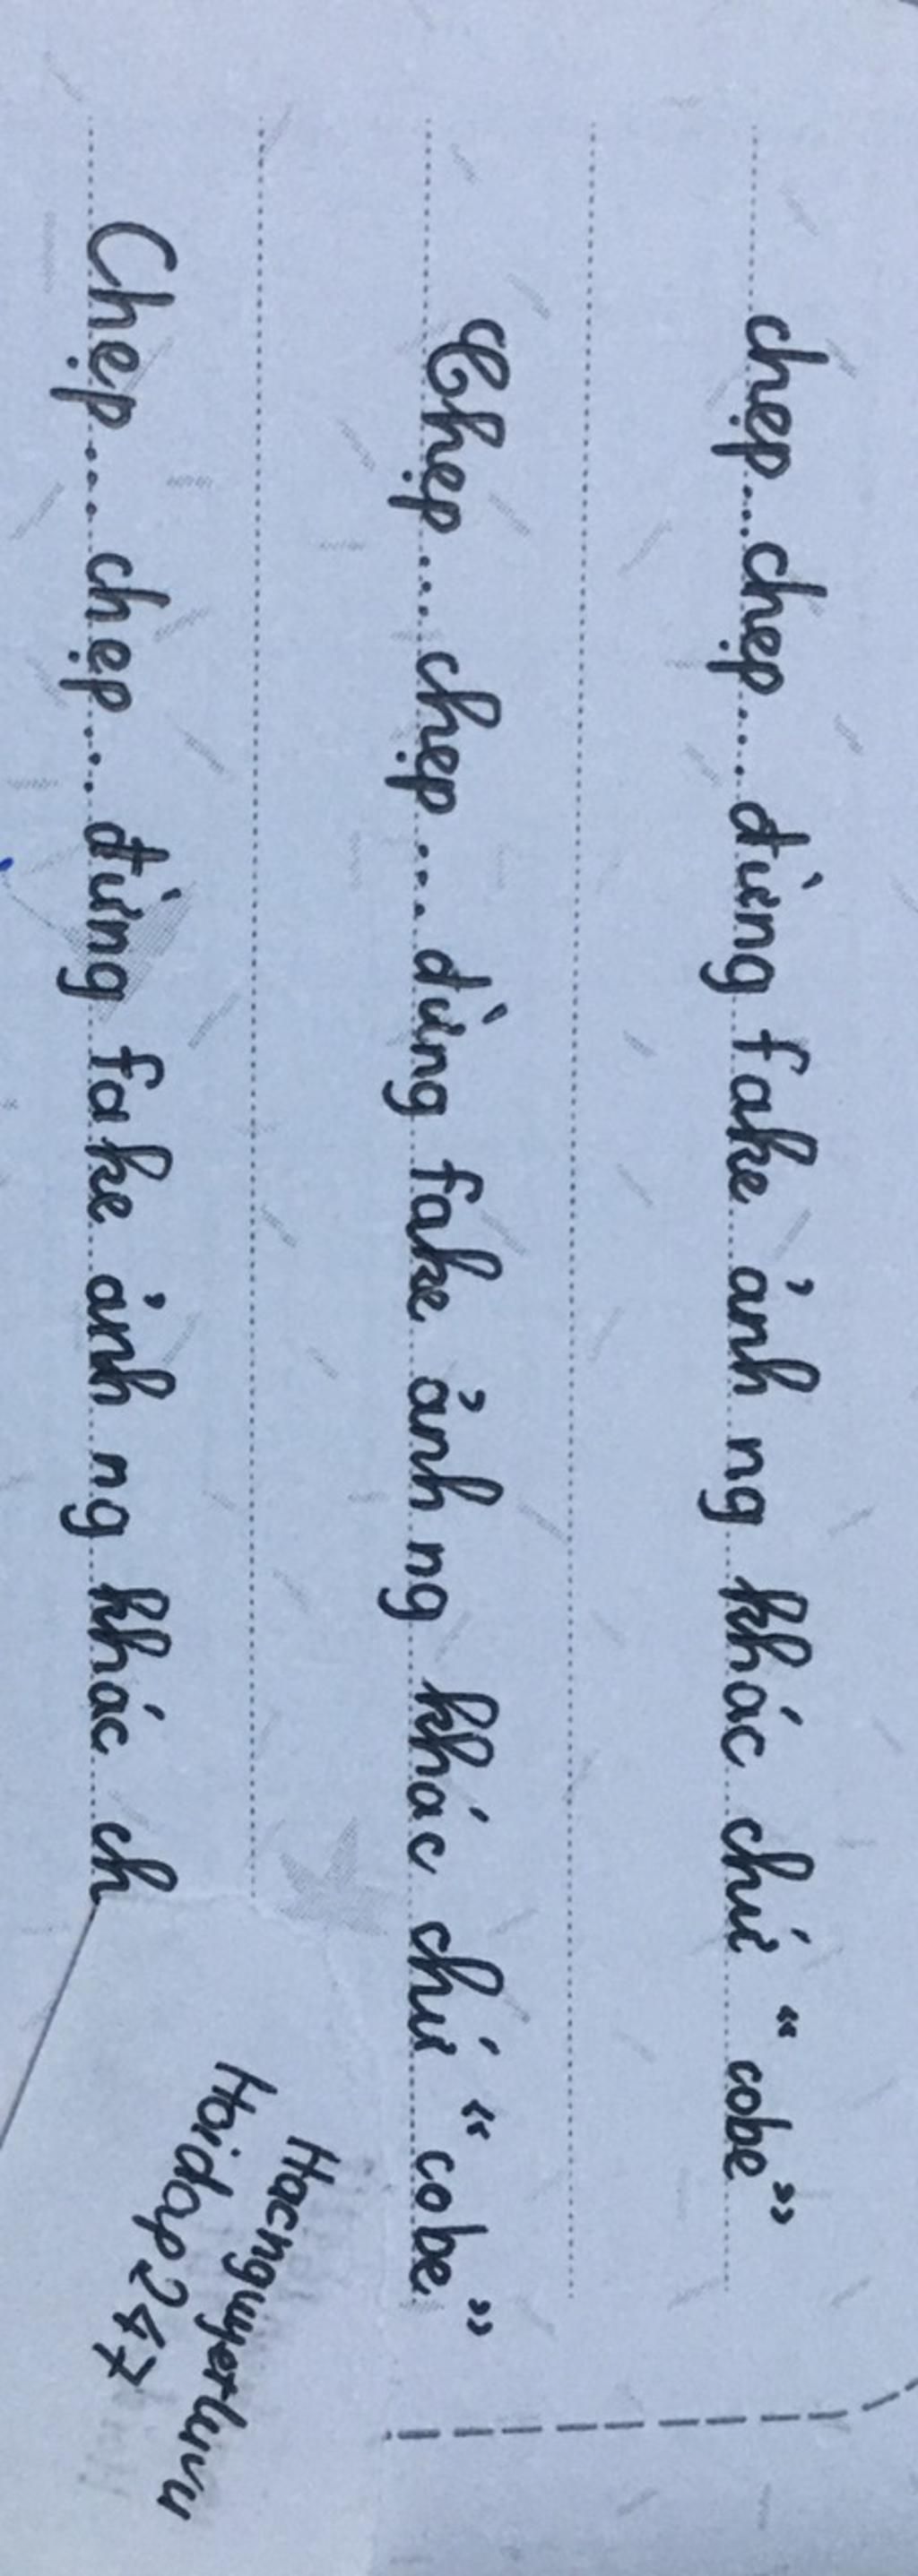 chẹp...chẹp... đừng fake ảnh ng khác chứ "cobe"
Chẹp... chẹp... đừng fake ảnh ng khác chứ "cobe"
Chẹp... chẹp... đừng fake ảnh ng khác ch
Hoidap247